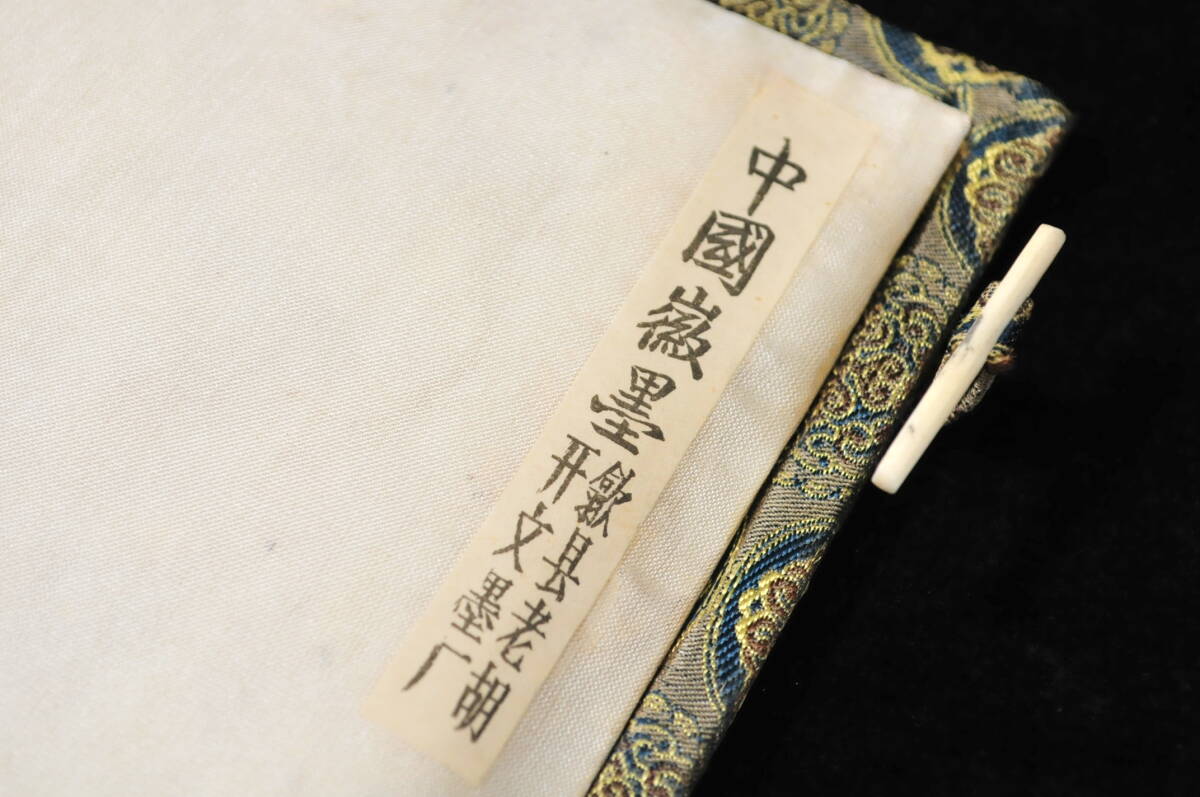 中國徽墨
歙县老胡
开文墨厂